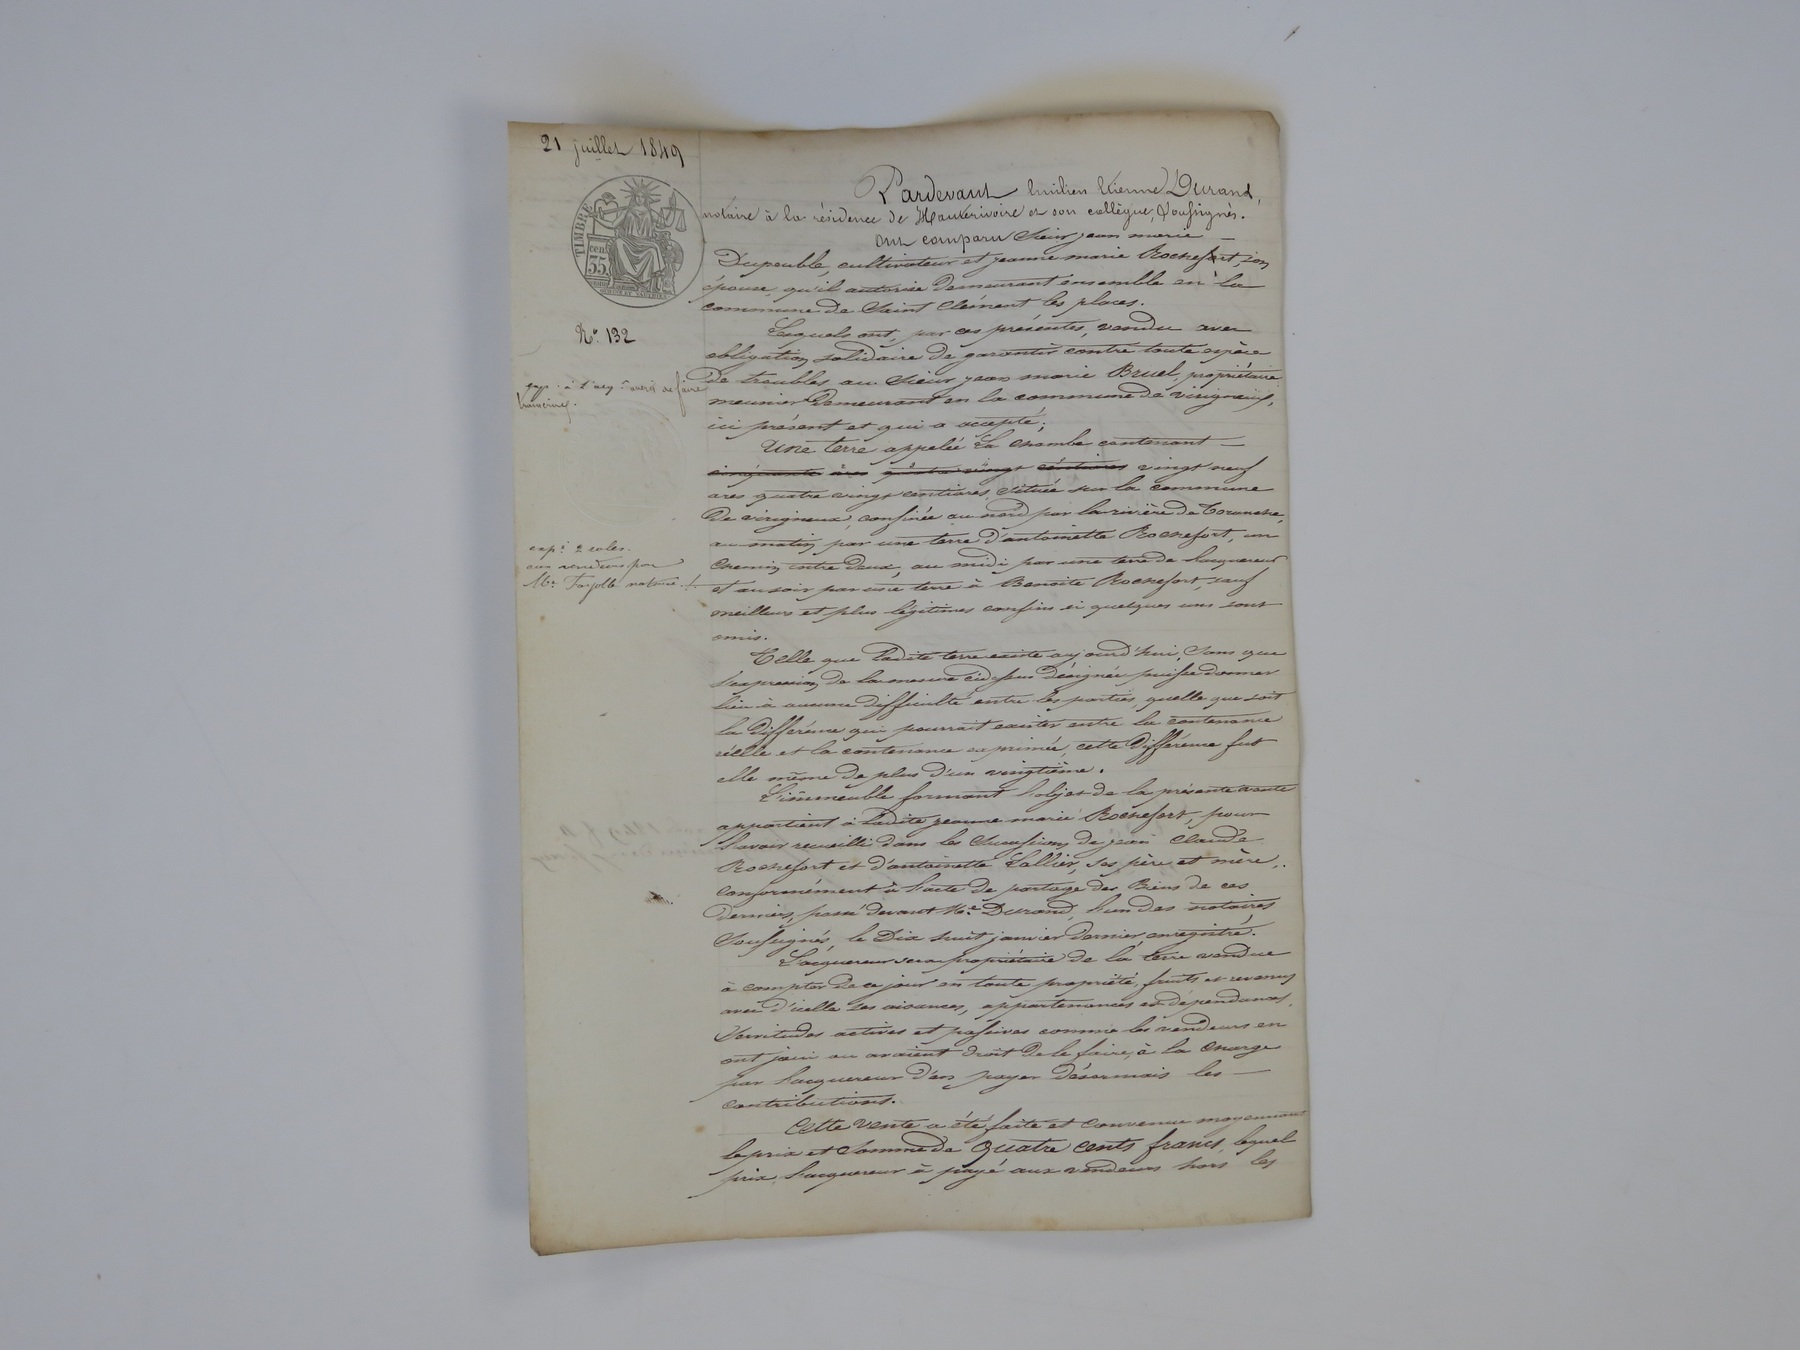 21 juillet 1849
TIMBRE
35
cent
N.o 132
exp.on 2 roles.
aux vendeurs par
Me. notaire
Pardevant Emilien Etienne Durand,
notaire à la résidence de Hauterivoire et son collègue, Soussignés.
Ont comparu Sieur jean marie
Dupeuble, cultivateur et jeanne marie Rochefort, son
épouse, qu'il autorise demeurant ensemble en la
commune de Saint Clément les places.
Lesquels ont, par ces présentes, vendu avec
obligation solidaire de garantir contre toute espèce
de troubles, au Sieur jean marie Bruel, propriétaire
meunier demeurant en la commune de virigneux,
ici présent et qui a accepté;
Une terre appelée La Chambe contenant
cinquante ares quatre vingt centiares vingt neuf
ares quatre vingt centiares, Située sur la commune
de virigneux, confinée au nord par la rivière de Toranche,
au matin par une terre d'antoinette Rochefort, un
chemin entre deux, au midi par une terre de l'acquereur
et au soir par une terre à Benoite Rochefort, sauf
meilleurs et plus légitimes confins si quelques uns sont
omis.
Telle que ladite terre existe aujourd'hui, Sans que
l'expression de la mesure cidessus désignée puisse donner
lieu à aucune difficulté entre les parties, quelle que soit
la différence qui pourrait exister entre la contenance
réelle et la contenance exprimée, cette différence fut
elle même de plus d'un vingtième.
L'immeuble formant l'objet de la présente vente
appartient à ladite jeanne marie Rochefort, pour
l'avoir recueilli dans les Successions de jean Claude
Rochefort et d'antoinette Sallier, Ses père et mère,
conformément à l'acte de partage des Biens de ces
derniers, passé devant Me Durand, l'un des notaires
Soussignés, le Dix huit janvier dernier enregistré.
L'acquereur sera propriétaire de la terre vendue
à compter de ce jour en toute propriété, fruits et revenus
avec d'icelle ses aisances, appartenances et dépendances,
Servitudes actives et passives comme les vendeurs en
ont joui ou avaient droit de le faire, à la charge
par l'acquereur d'en payer désormais les
contributions.
Cette vente a été faite et convenue moyennant
le prix et Somme de quatre cents francs, lequel
prix, l'acquereur à payé aux vendeurs hors les